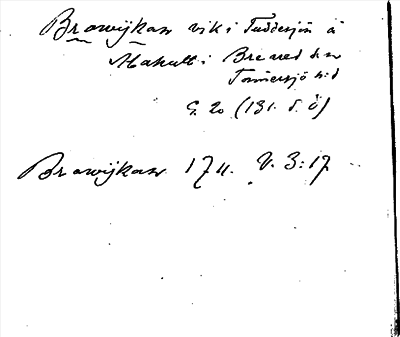 Browijkan vik i Tuddesjön å
Mahult i Breared sn
Tönnersjö hd
G. 20 (131. 5. Ö)
Browijkan 1711. V. 3:17